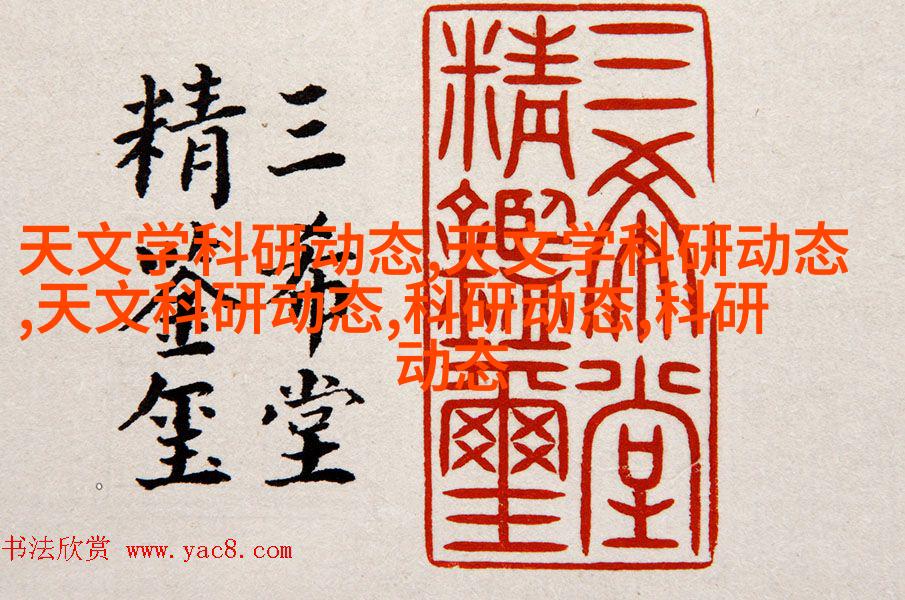 三希堂
精鉴玺
三希堂
精鑑璽
天文学科研动态,天文学科研动态
,天文科研动态,科研动态,科研
动态
书法欣赏 www.yac8.com